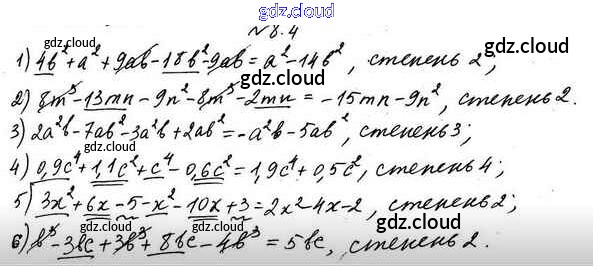 gdz.cloud
№8.4
1) 4b² + a² + 9ab - 18b² - 9ab = a² - 14b², степень 2;
gdz.cloud gdz.cloud
2) 8m³ - 13mn - 9n² - 8m³ - 2mn = -15mn - 9n², степень 2.
gdz.cloud
3) 2a²b - 7ab² - 3a²b + 2ab² = -a²b - 5ab², степень 3;
gdz.cloud
4) 0,9c⁴ + 1,1c² + c⁴ - 0,6c² = 1,9c⁴ + 0,5c², степень 4;
gdz.cloud
5) 3x² + 6x - 5 - x² - 10x + 3 = 2x² - 4x - 2, степень 2;
gdz.cloud
6) b³ - 3bc + 3b³ + 8bc - 4b³ = 5bc, степень 2.
gdz.cloud gdz.cloud